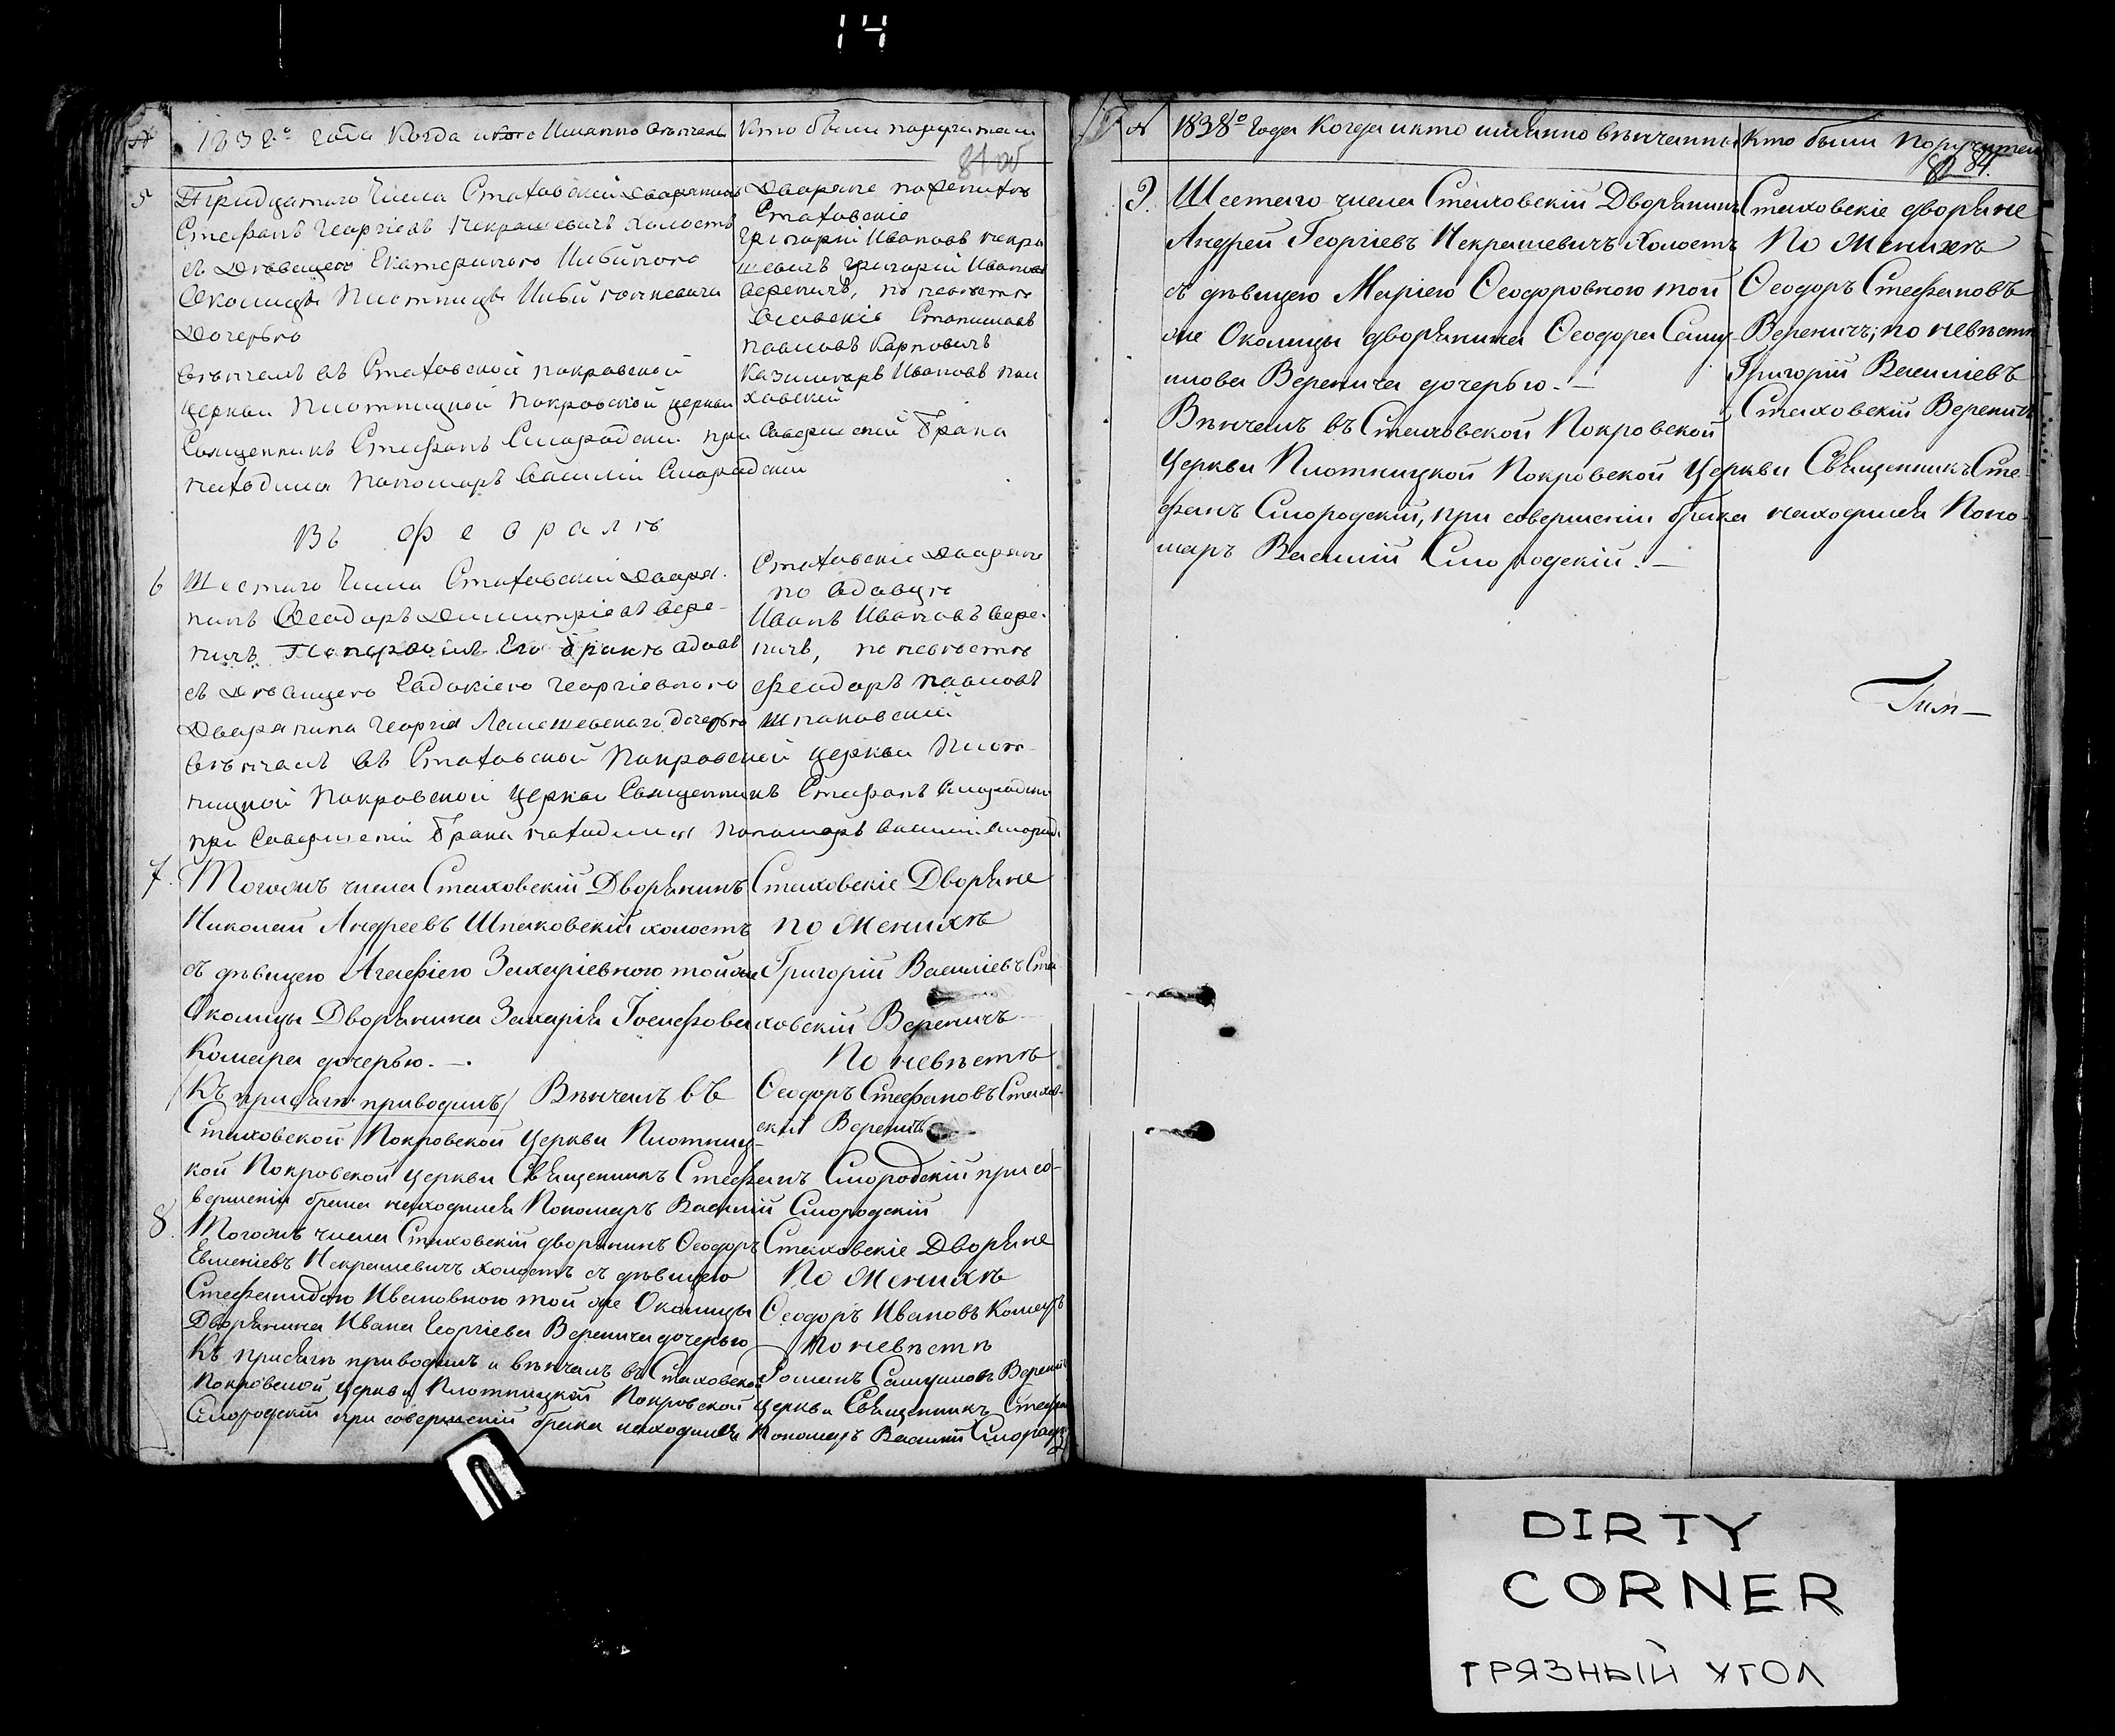 14
№ 1838го года Когда и кого Именно Вѣнчалъ Кто были поручители
81 об
5 Тридцатаго Числа Стаховскій Дворянинъ
Стефанъ Георгіевъ Некрашевичъ Холостъ
съ Дѣвицею Екатериною
Околицы Плотницы
Дочерью
Вѣнчалъ въ Стаховской покровской
церкви Плотницкой Покровской церкви
Священникъ Стефанъ Смородскій при Совершеніи Брака
находился Пономаръ Василій Смородскій
Дворяне по женихѣ
Стаховскіе
Григорій Ивановъ некра
шевичъ Григорій Ивановъ
вереничъ, по невѣстѣ
Станиславъ
Павловъ Карповичъ
Казимиръ Ивановъ
ховскій
Въ Февралѣ
6 Шестаго Числа Стаховскій Дворя-
нинъ Феодоръ Димитріевъ вере-
ничъ Его бракѣ вдовъ
съ Дѣвицею Евдокіею Георгіевною
Дворянина Георгія Лемешевскаго дочерью
Вѣнчалъ въ Стаховской Покровской церкви Плот-
ницкой Покровской церкви Священникъ Стефанъ Смородскій
при Совершеніи Брака находился Пономаръ Василій Смород
Стаховскіе Дворяне
по вдовцу
Иванъ Ивановъ вере-
ничъ, по невѣстѣ
Феодоръ Павловъ
Шпаковскій
7. Тогожъ числа Стаховскій Дворянинъ
Николай Андреевъ Шпаковскій холостъ
съ дѣвицею Агафіею Захаріевною той же
Околицы Дворянина Захарія Іосифова
Комара дочерью.—
/Къ присягѣ приводилъ/ Вѣнчалъ въ
Стаховской Покровской Церкви Плотниц-
кой Покровской церкви Священникъ Стефанъ Смородскій при со-
вершеніи брака находился Пономаръ Василій Смородскій
Стаховскіе Дворяне
по Женихѣ
Григорій Василіевъ Ста
ховскій Вереничъ
По невѣстѣ
Ѳеодоръ Стефановъ Стахов-
скій Вереничъ
8. Тогожъ числа Стаховскій дворянинъ Ѳеодоръ
Евменіевъ Некрашевичъ холостъ съ дѣвицею
Стефанидою Ивановною той же Околицы
Дворянина Ивана Георгіева Веренича дочерью
Къ присягѣ приводилъ и вѣнчалъ въ Стаховской
Покровской церкви Плотницкой Покровской церкви Священникъ Стефан
Смородскій при совершеніи брака находился Пономаръ Василій Смородск
Стаховскіе Дворяне
По Женихѣ
Ѳеодоръ Ивановъ Комаръ
По невѣстѣ
Романъ Самуиловъ Веренич
№ 1838го Года Когда и кто именно вѣнчанны Кто были Поручители
84.
9. Шестаго числа Стаховскій Дворянинъ
Андрей Георгіевъ Некрашевичъ Холостъ
съ дѣвицею Маріею Ѳеодоровною той
же Околицы дворянина Ѳеодора Саму-
илова Веренича дочерью.—
Вѣнчалъ въ Стаховской Покровской
Церкви Плотницкой Покровской Церкви Священникъ Сте-
фанъ Смородскій, при совершеніи брака находился Поно-
маръ Василій Смородскій.—
Стаховскіе дворяне
По Женихѣ
Ѳеодоръ Стефановъ
Вереничъ, по невѣстѣ
Григорій Василіевъ
Стаховскій Веренич
DIRTY
CORNER
ГРЯЗНЫЙ УГОЛ